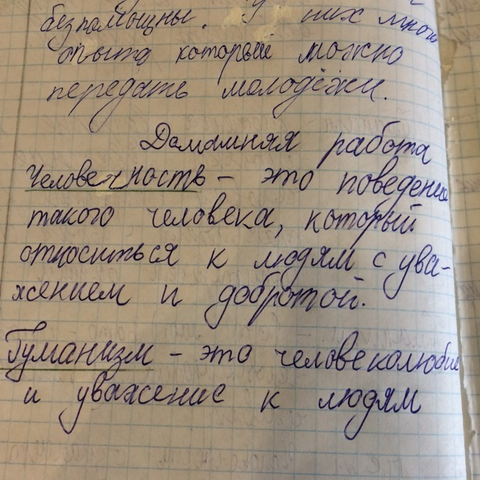 безпомощны. У них много
опыта который можно
передать молодёжи.
Домашняя работа
Человечность - это поведение
такого человека, который
относиться к людям с ува-
жением и добротой.
Гуманизм - это человеколюбие
и уважение к людям